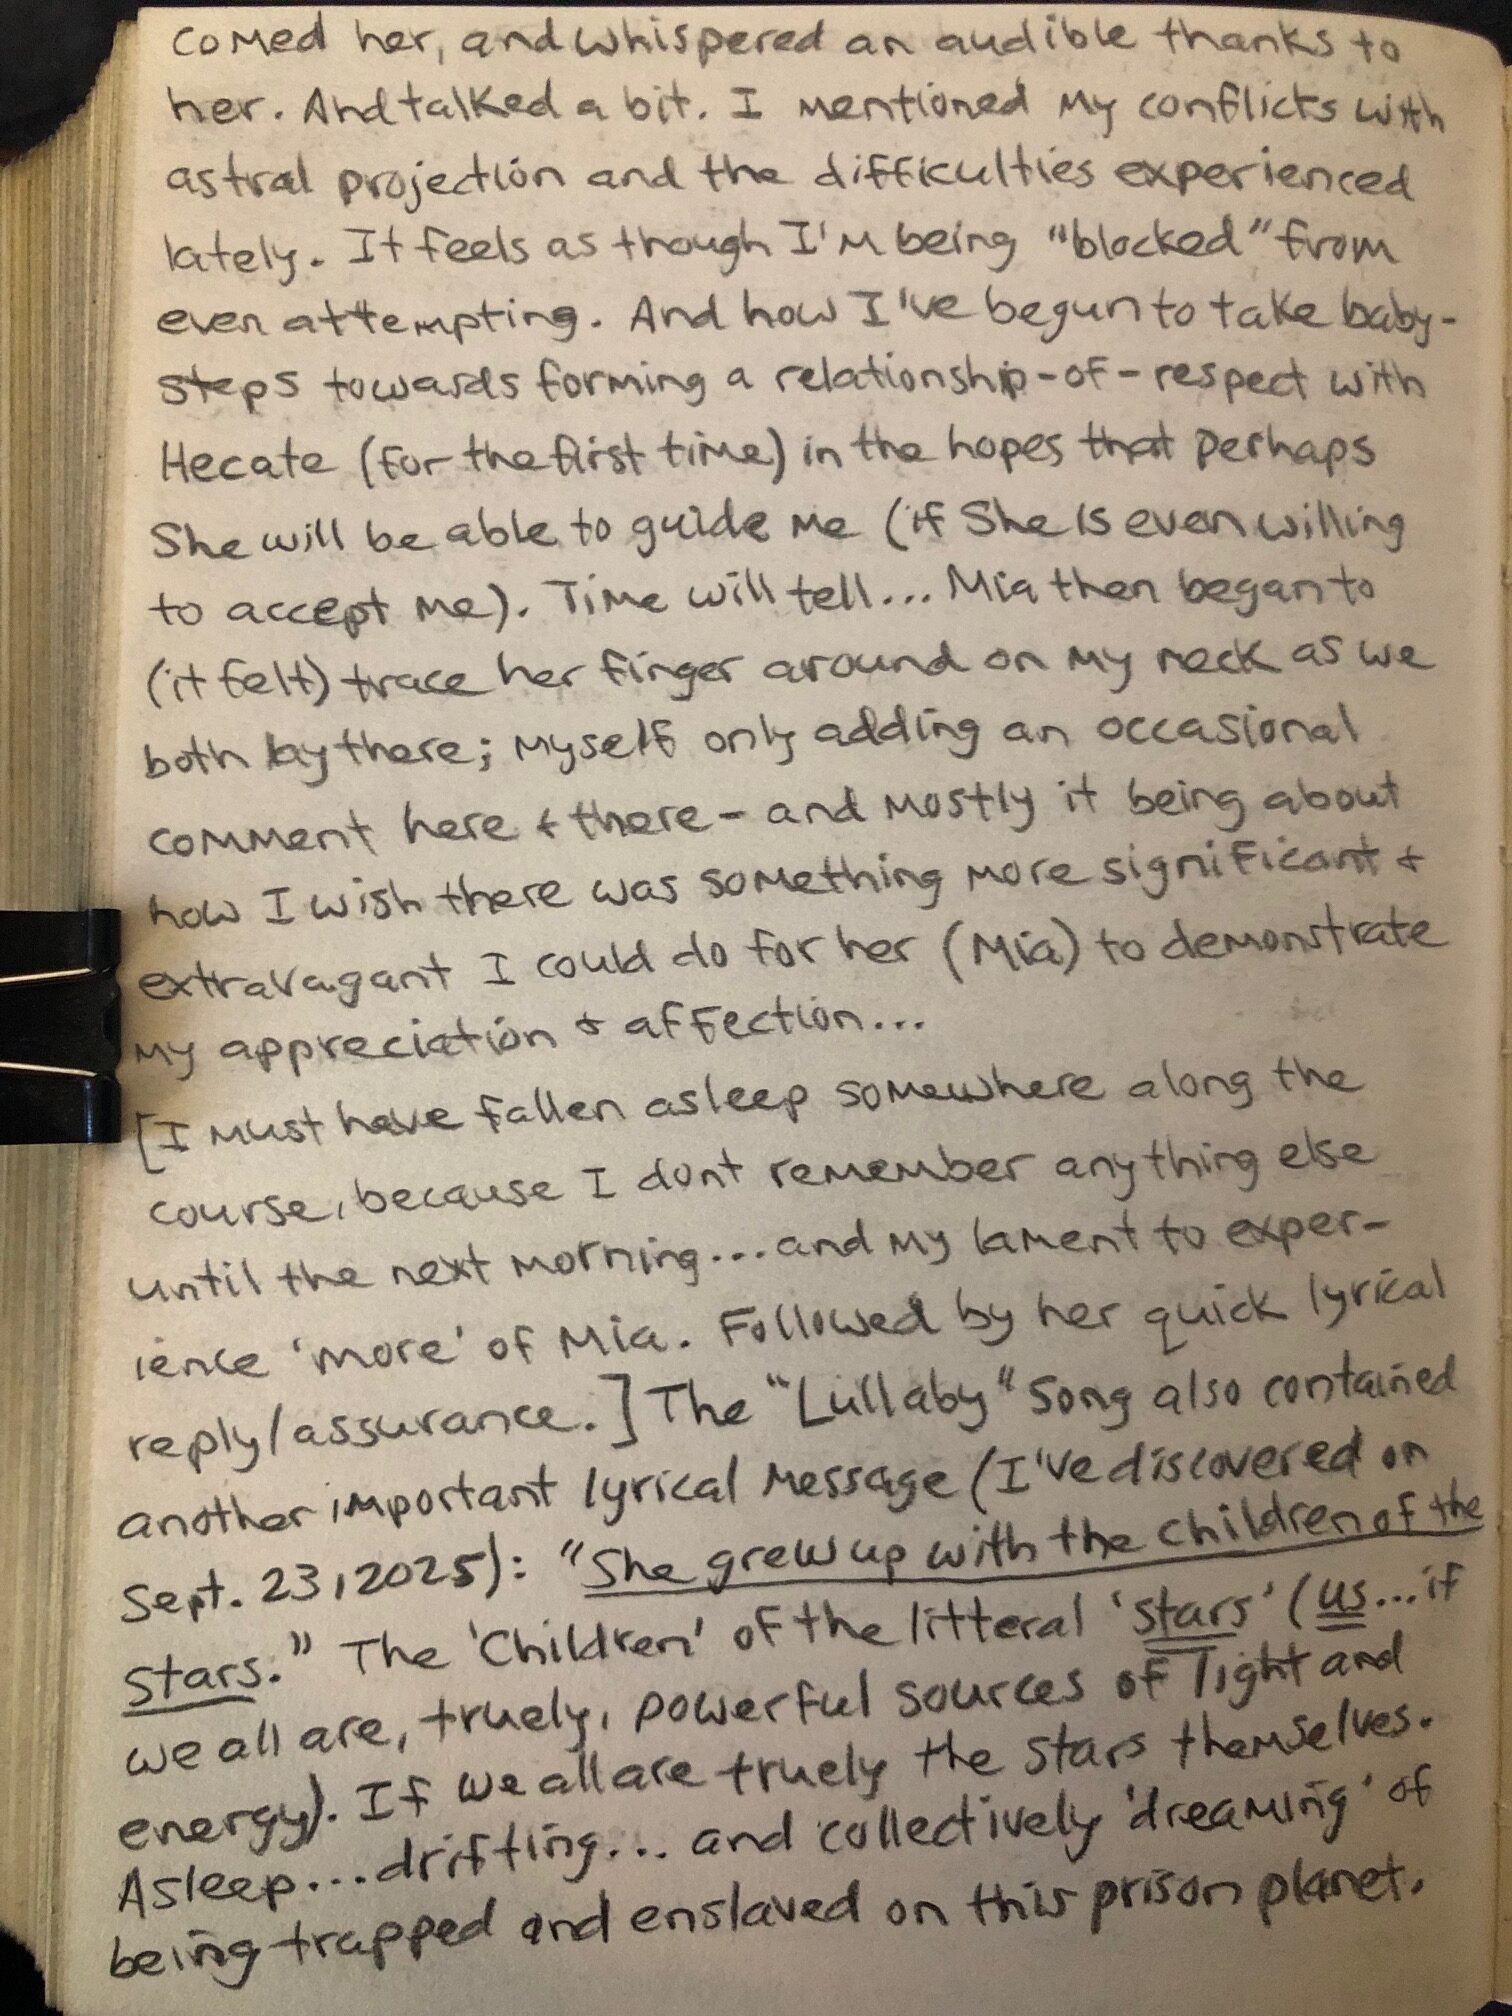 comed her, and whispered an audible thanks to
her. And talked a bit. I mentioned my conflicts with
astral projection and the difficulties experienced
lately. It feels as though I'm being "blocked" from
even attempting. And how I've begun to take baby-
steps towards forming a relationship-of-respect with
Hecate (for the first time) in the hopes that perhaps
She will be able to guide me (if She is even willing
to accept me). Time will tell... Mia then began to
(it felt) trace her finger around on my neck as we
both lay there; myself only adding an occasional
comment here & there - and mostly it being about
how I wish there was something more significant &
extravagant I could do for her (Mia) to demonstrate
my appreciation & affection...
[I must have fallen asleep somewhere along the
course, because I dont remember anything else
until the next morning... and my lament to exper-
ience 'more' of Mia. Followed by her quick lyrical
reply/assurance.] The "Lullaby" song also contained
another important lyrical message (I've discovered on
Sept. 23, 2025): "She grew up with the children of the
stars." The 'Children' of the litteral 'stars' (us... if
we all are, truely, powerful sources of light and
energy). If we all are truely the stars themselves.
Asleep... drifting... and collectively 'dreaming' of
being trapped and enslaved on this prison planet.